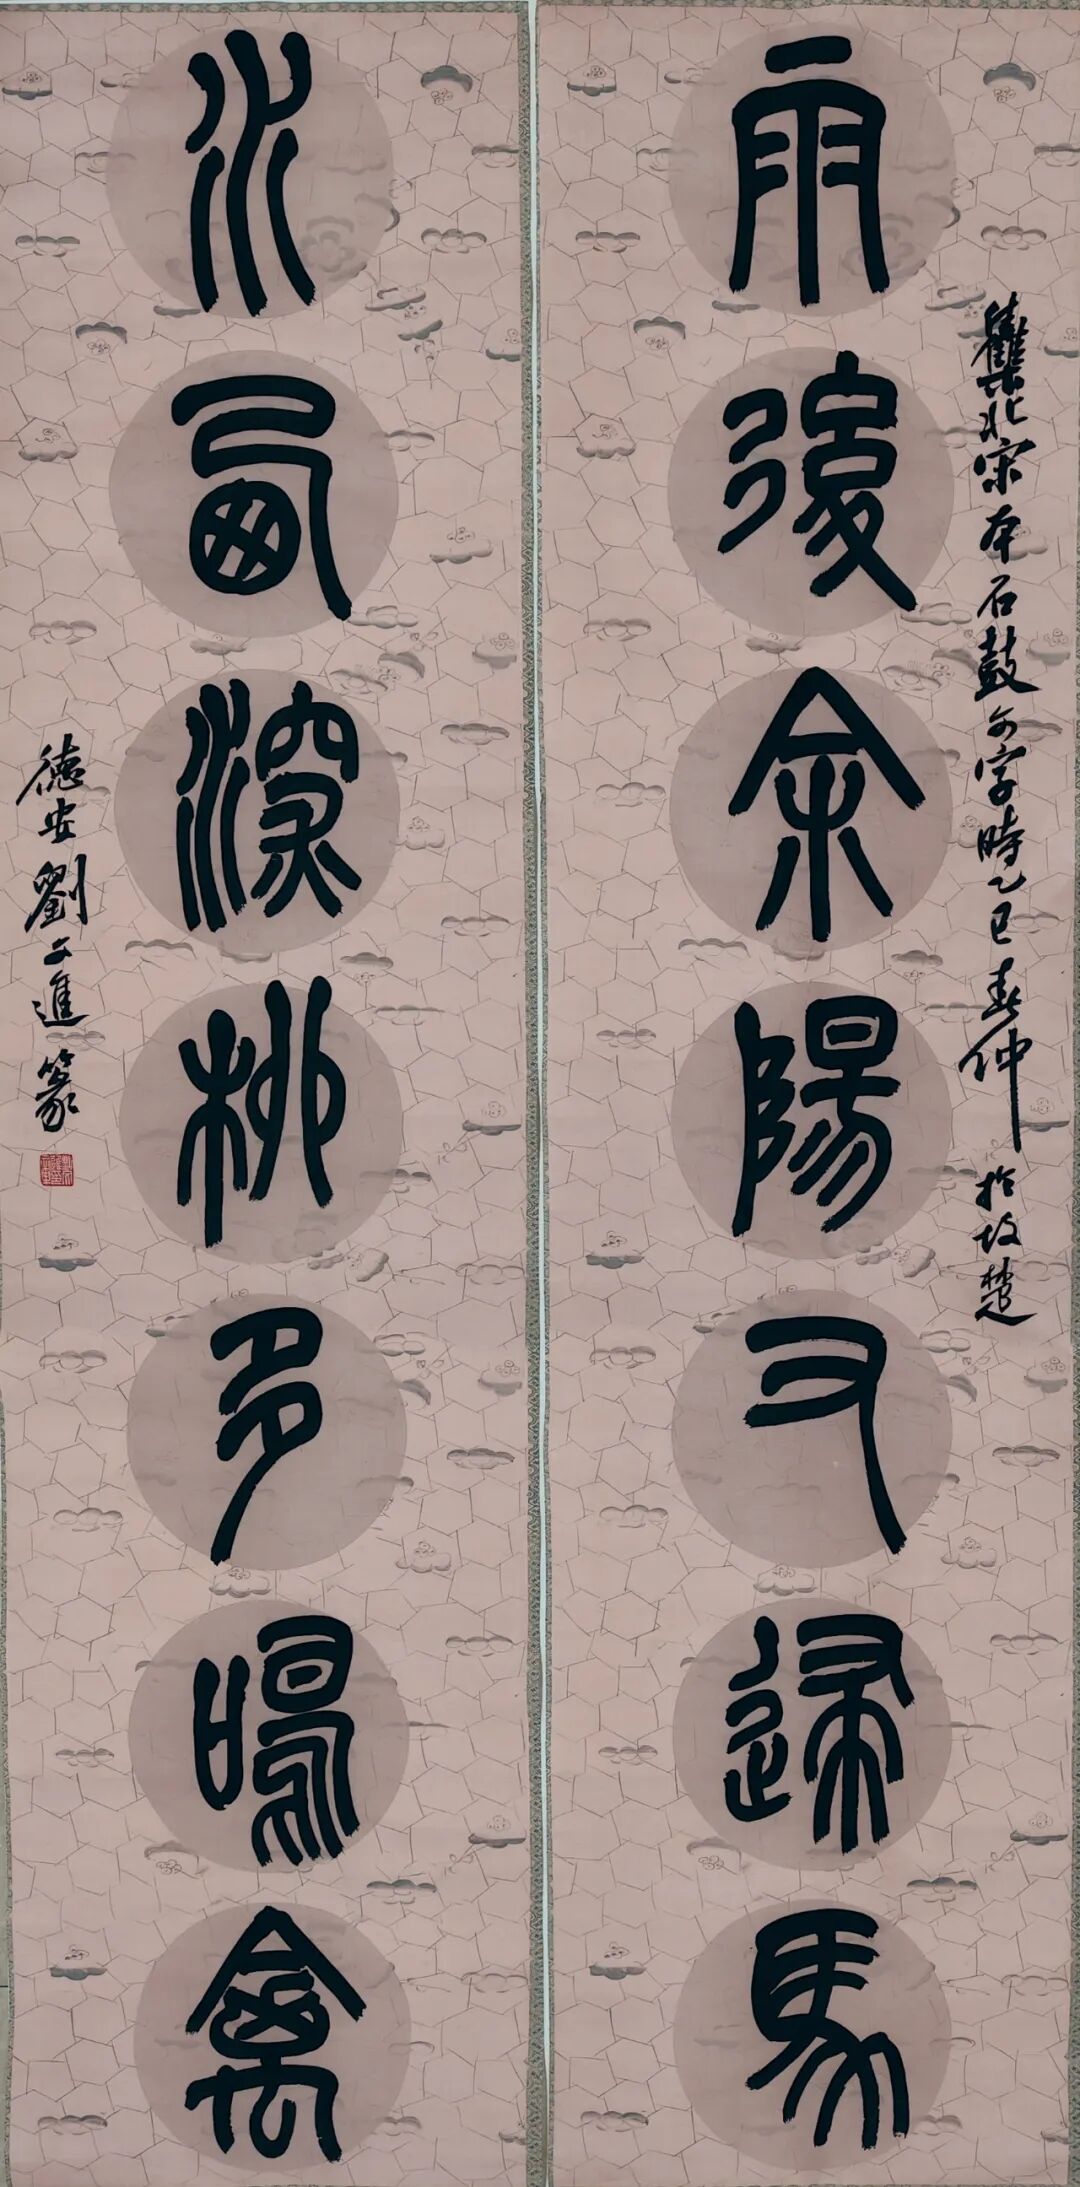 雧北宋本石鼓文字時乙巳春仲於故楚
雨後余陽又歸馬
水西深桃多鳴禽
德安劉文進篆